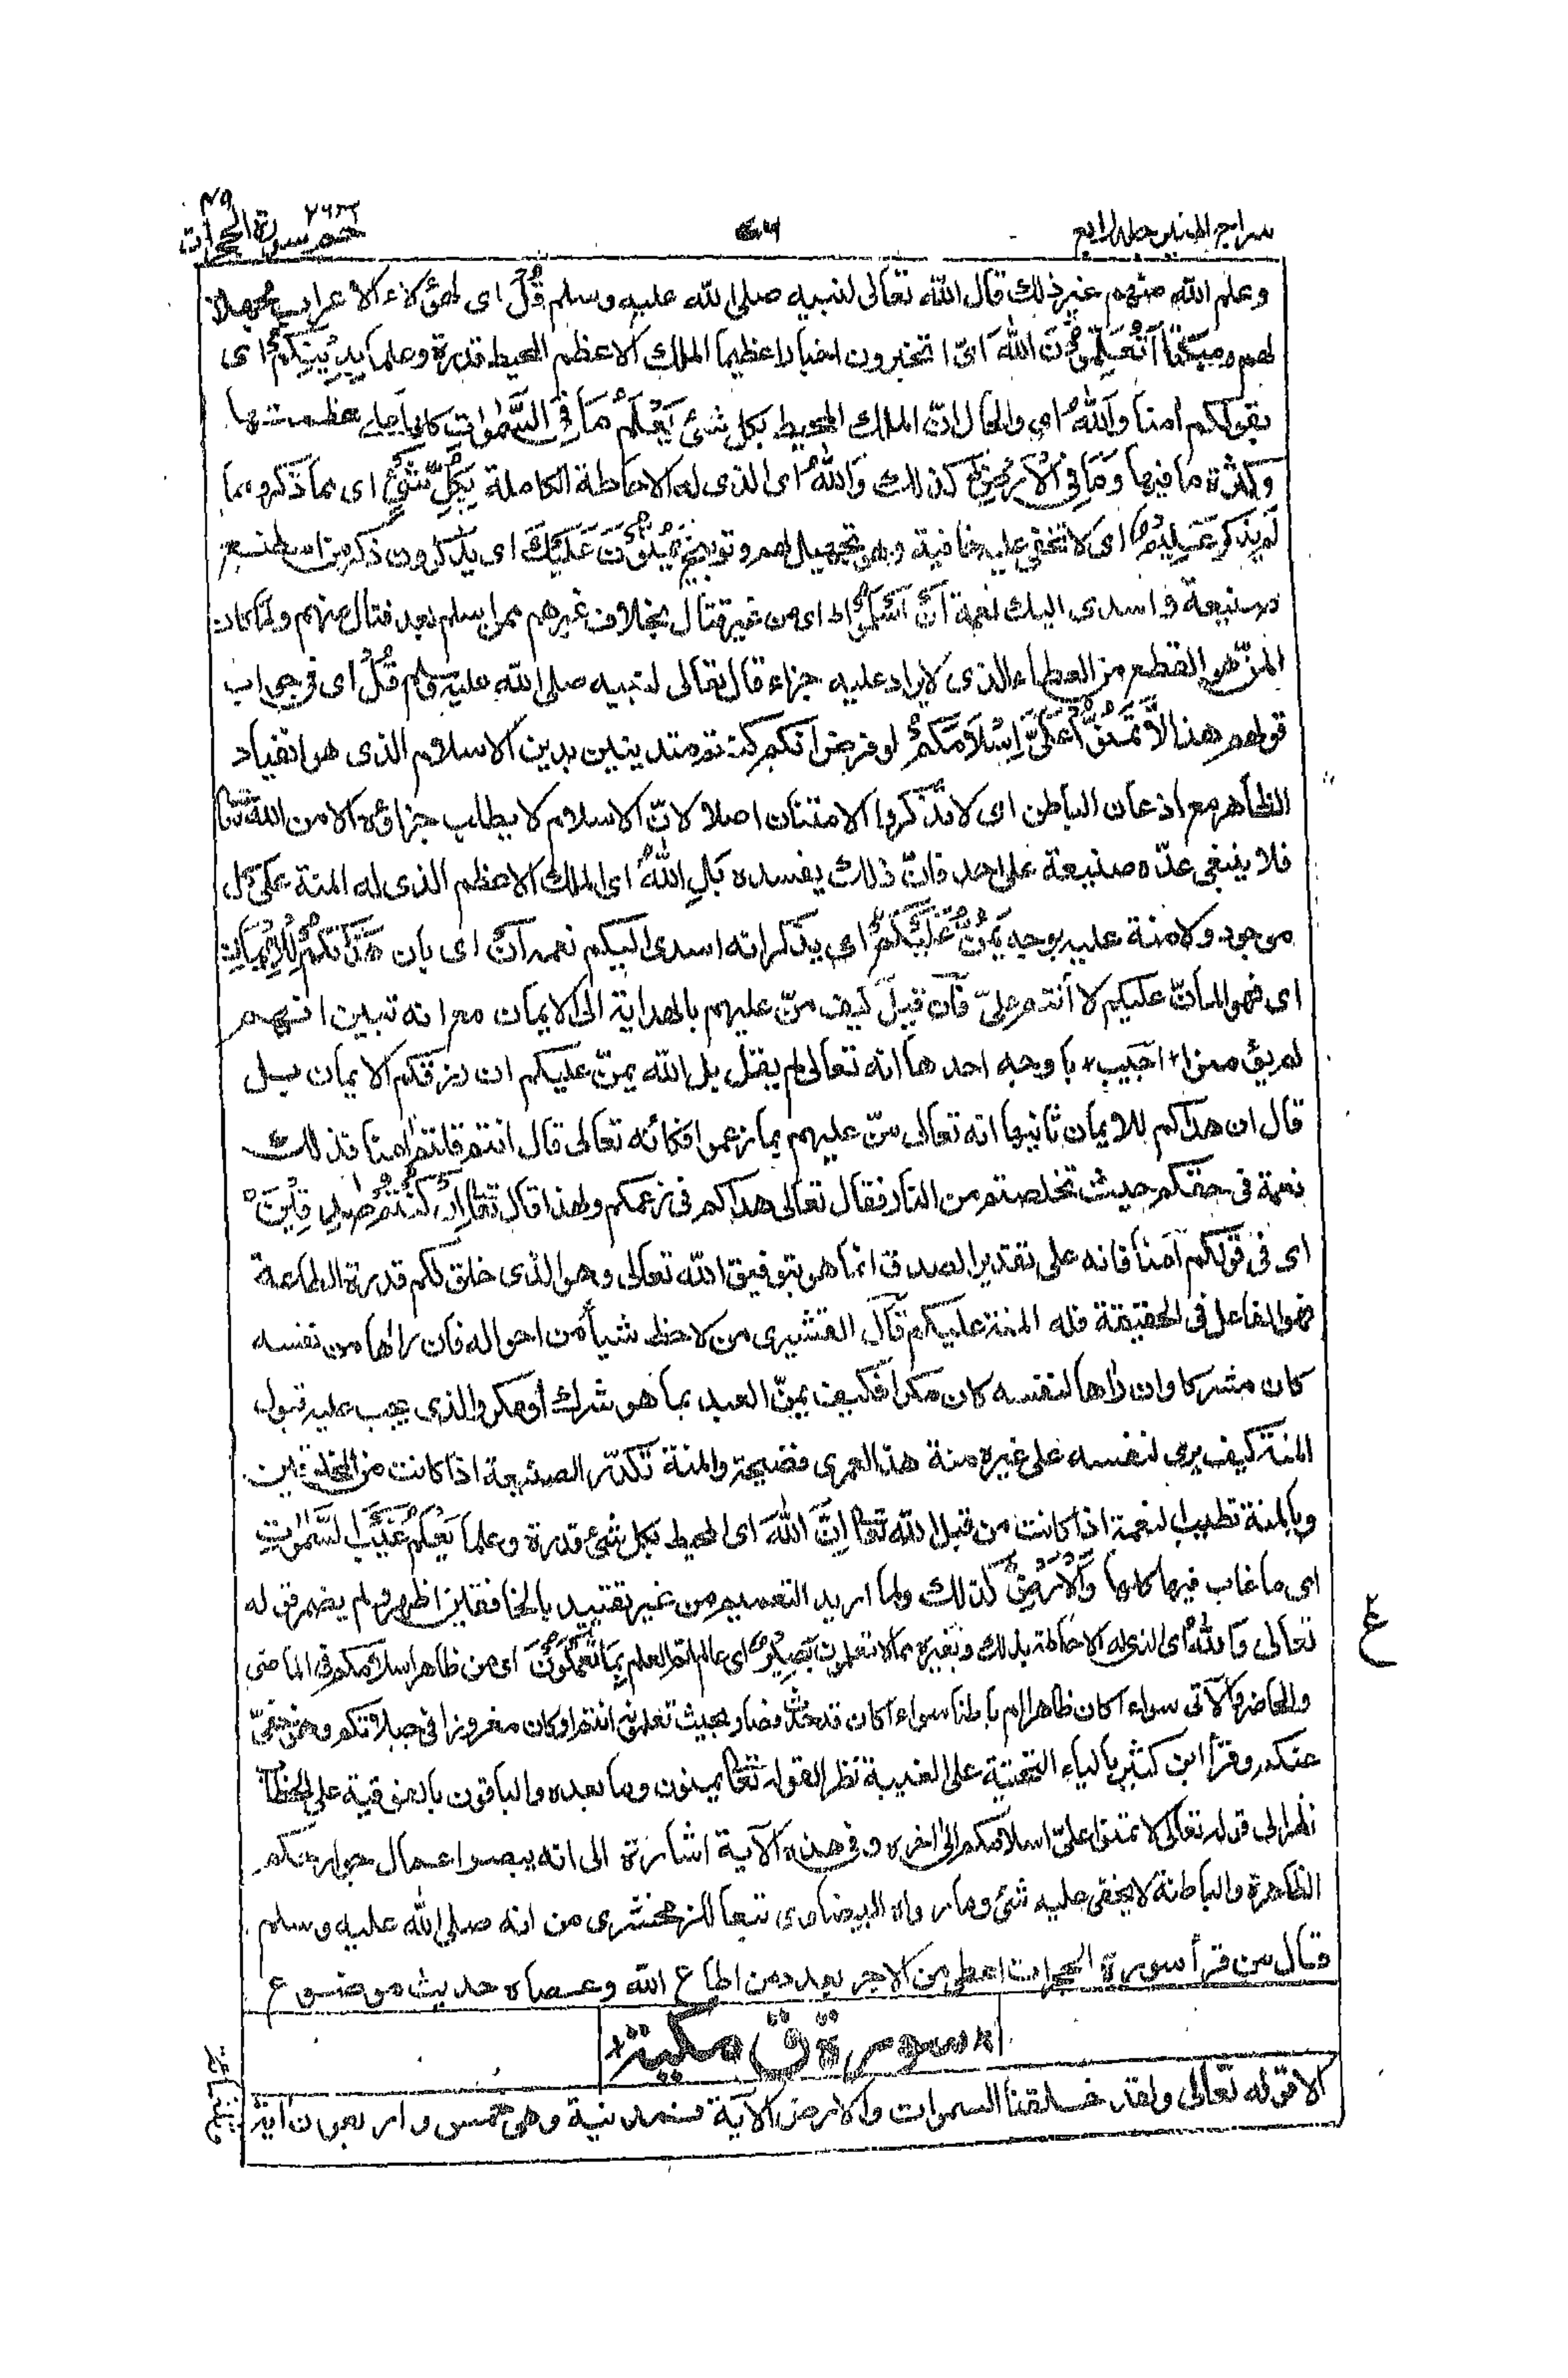 سراج المنير جلد رابع
٧٦
حم سورة الحجرات
٤٩
وعلم الله منهم غير ذلك قال الله تعالى لنبيه صلى الله عليه وسلم قُلْ اى لهؤلاء الاعراب مجهلا
لهم ومبكتا اَتُعَلِّمُوْنَ اللهَ اَىْ اتخبرون اخبارا عظيما الملك الاعظم المحيط قدرة وعلما بِدِيْنِكُمْ اى
بقولكم امنا وَاللهُ اى والحال انّ الملك المحيط بكل شئ يَعْلَمُ مَا فِى السَّمٰوٰتِ كلها على عظمتها
وكثرة ما فيها وَمَا فِى الْاَرْضِ كذلك وَاللهُ اى الذى له الاحاطة الكاملة بِكُلِّ شَىْءٍ اى مما ذكر ومما
لم يذكر عَلِيْمٌ اى لا تخفى عليه خافية وهو تجهيل لهم وتوبيخ يَمُنُّوْنَ عَلَيْكَ اى يذكرون ذكر من اصطنع
صنيعة واسدى اليك نعمة اَنْ اَسْلَمُوْا اى من غير قتال بخلاف غيرهم ممن اسلم بعد قتال منهم ولما كان
المنّ هو القطع من العطاء الذى لا يراد عليه جزاء قال تعالى لنبيه صلى الله عليه وسلم قُلْ اى فى جواب
قولهم هذا لَا تَمُنُّوْا عَلَىَّ اِسْلَامَكُمْ لو فرض انكم كنتم متدينين بدين الاسلام الذى هو انقياد
الظاهر مع اذعان الباطن اى لا تذكروا الامتنان اصلا لانّ الاسلام لا يطلب جزاؤه الا من الله تعالى
فلا ينبغى عدّه صنيعة على احد فانّ ذلك يفسده بَلِ اللهُ اى الملك الاعظم الذى له المنة على كل
موجود ولا منة عليه بوجه يَمُنُّ عَلَيْكُمْ اى يذكر انه اسدى اليكم نعمه اَنْ اى بان هَدٰىكُمْ لِلْاِيْمَانِ
اى فهو المانّ عليكم لا أنتم علىّ فان قيل كيف منّ عليهم بالهداية الى الايمان مع انه تبين انهم
لم يؤمنوا اجيب باوجه احدها انه تعالى لم يقل بل الله يمنّ عليكم ان رزقكم الايمان بل
قال ان هداكم للايمان ثانيها انه تعالى منّ عليهم بما زعموا فكأنه تعالى قال انتم قلتم امنا فذلك
نعمة فى حقكم حيث تخلصتم من النار فقال تعالى هداكم فى زعمكم ولهذا قال تعالى اِنْ كُنْتُمْ صٰدِقِيْنَ
اى فى قولكم آمنا فانه على تقدير الصدق انما هو بتوفيق الله تعالى وهو الذى خلق لكم قدرة الطاعة
فهو الفاعل فى الحقيقة فله المنة عليكم قال القشيرى من لاحظ شيأ من احواله فان راها من نفسه
كان مشركا وان راها لنفسه كان مكرا فكيف يمنّ العبد بما هو شرك او مكر والذى يجب عليه قبول
المنة كيف يرى لنفسه على غيره منة هذا لعمرى فضيحة والمنة تكدّر الصنيعة اذا كانت من المخلوقين
وبالمنة تطيب النعمة اذا كانت من قبل الله تعالى اِنَّ اللهَ اى المحيط بكل شئ قدرة وعلما يَعْلَمُ غَيْبَ السَّمٰوٰتِ
اى ما غاب فيها كلها وَالْاَرْضِ كذلك ولما اريد التعميم من غير تقييد بالخافقين اظهر ولم يضمر قوله
تعالى وَاللهُ اى الذى له الاحاطة بذلك وبغيره مما لا تعلمون بَصِيْرٌ اى عالم اتم العلم بِمَا تَعْمَلُوْنَ اى من ظاهر اسلامكم فى الماضى
والحاضر والآتى سواء اكان ظاهرا ام باطنا سواء اكان قد حدث فصار بحيث تعلمونه انتم او كان مغروزا فى جبلاتكم وهو خفىّ
عنكم وقرأ ابن كثير بالياء التحتية على الغيبة نظر القوله تعالى يمنون وما بعده والباقون بالفوقية على الخطاب
نظرا الى قوله تعالى لا تمنوا علىّ اسلامكم الى اخره وفى هذه الآية اشارة الى انه يبصر اعمال جوارحكم
الظاهرة والباطنة لا يخفى عليه شئ وما رواه البيضاوى تبعا للزمخشرى من انه صلى الله عليه وسلم
قال من قرأ سورة الحجرات اعطى من الاجر بعدد من اطاع الله وعصاه حديث موضوع
ع
سورة ق مكية
الا قوله تعالى ولقد خلقنا السموات والارض الآية فمدنية وهى خمس واربعون اية